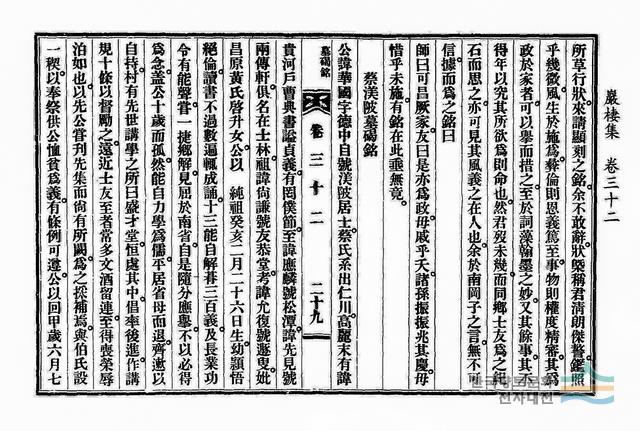 巖棲集 卷三十二
所草行狀來請顯刻之銘余不敢辭狀槩稱君淸朗傑謷鑑照
乎幾微風生於施爲彝倫則恩義篤至事物則權度精審其爲
政於家者可以擧而措之至於詞藻翰墨之妙又其餘事其不
得年以究其所欲爲則命也然君歿未幾而同鄕士友爲之紀
石而思之亦可見其風義之在人也余於南岡子之言無不可
信據而爲之銘曰
師曰可昌厥家友曰是亦爲政毋戚乎夭諸孫振振兆其慶毋
惜乎未施有銘在此垂無竟
蔡渼陂墓碣銘
公諱華國字德中自號渼陂居士蔡氏系出仁川高麗末有諱
墓碣銘
卷三十二
二十九
貴河戶曹典書諡貞義有罔僕節至諱應麟號松潭諱先見號
兩傳軒俱名在士林祖諱尙謙號友恭堂考諱允復號遯叟妣
昌原黃氏啓升女公以 純祖癸亥二月二十六日生幼穎悟
絕倫讀書不過數遍輒成誦十三能自解碁三百義及長業功
令有能聲嘗一捷鄕解見屈於南省自是隨分應擧不以必得
爲念盖公十歲而孤然能自力學爲儒平居省母而退齊遫以
自持村有先世講學之所曰盛才堂恒處其中倡率後進作講
規十條以督勵之遠近士友至者常多文酒留連至得喪榮辱
泊如也以先公嘗刊先集而尙有所闕爲之採補焉與伯氏設
一稧以奉祭供公恤貧爲義有條例可遵公以回甲歲六月七
한국향토문화
전자대전